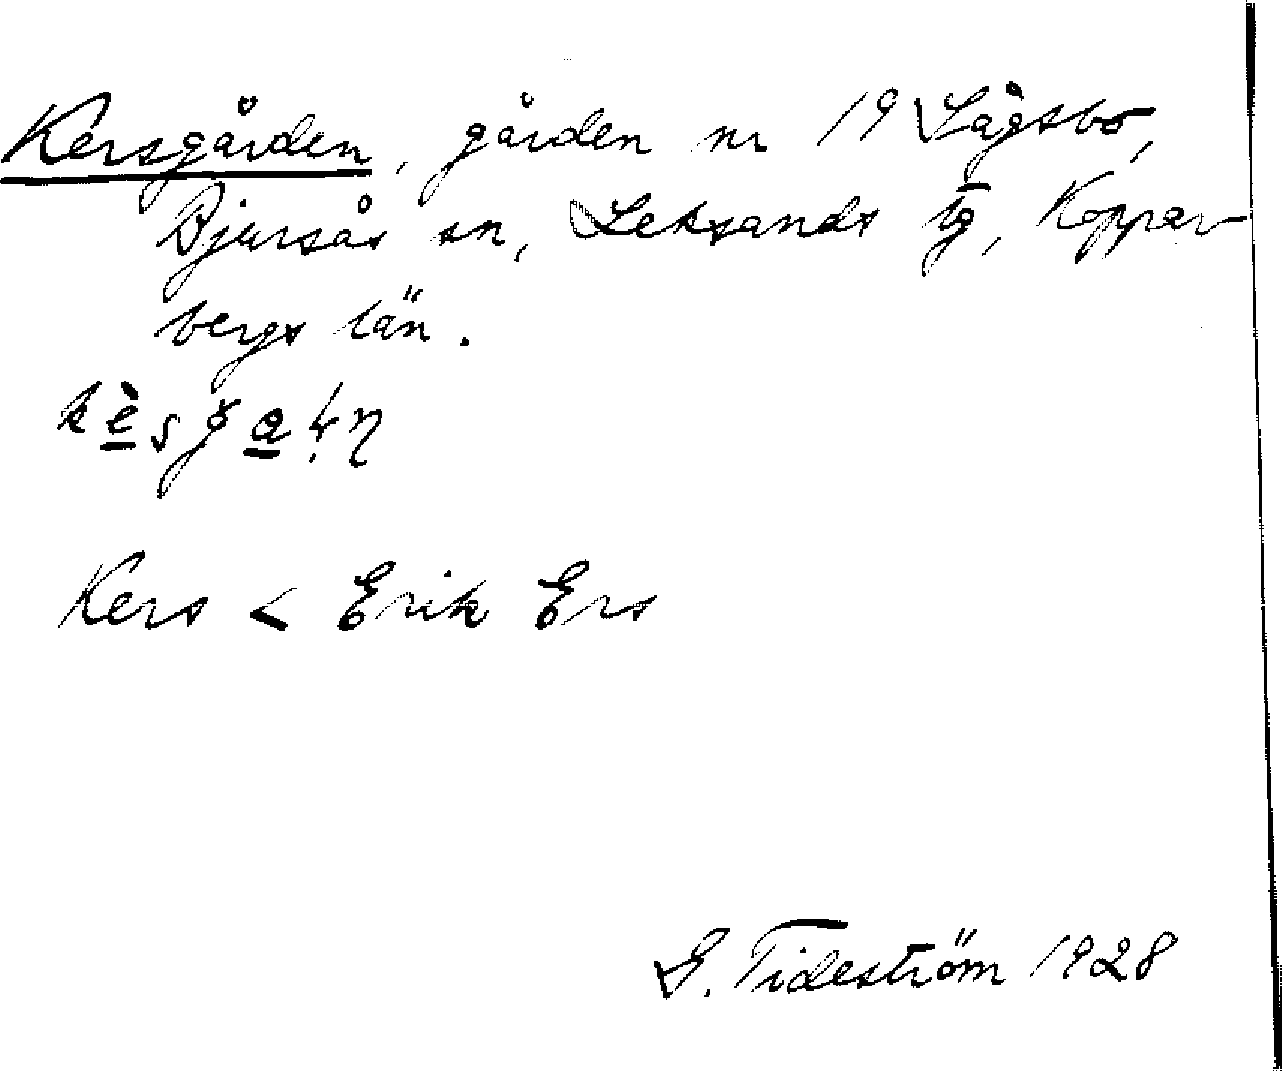 Kersgården, gården nr 19 Lågsbo,
Bjursås sn, Leksands tg, Koppar-
bergs län.
Kers < Erik Ers
G. Tideström 1928